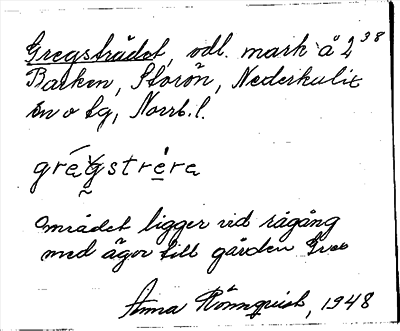 Gregsträdet, odl. mark å 2³⁸
Barken, Storön, Nederkalix
sn o tg, Norrb. l.
grégstrera
Området ligger vid rågång
med ägor till gården
Anna Rönnquist, 1948